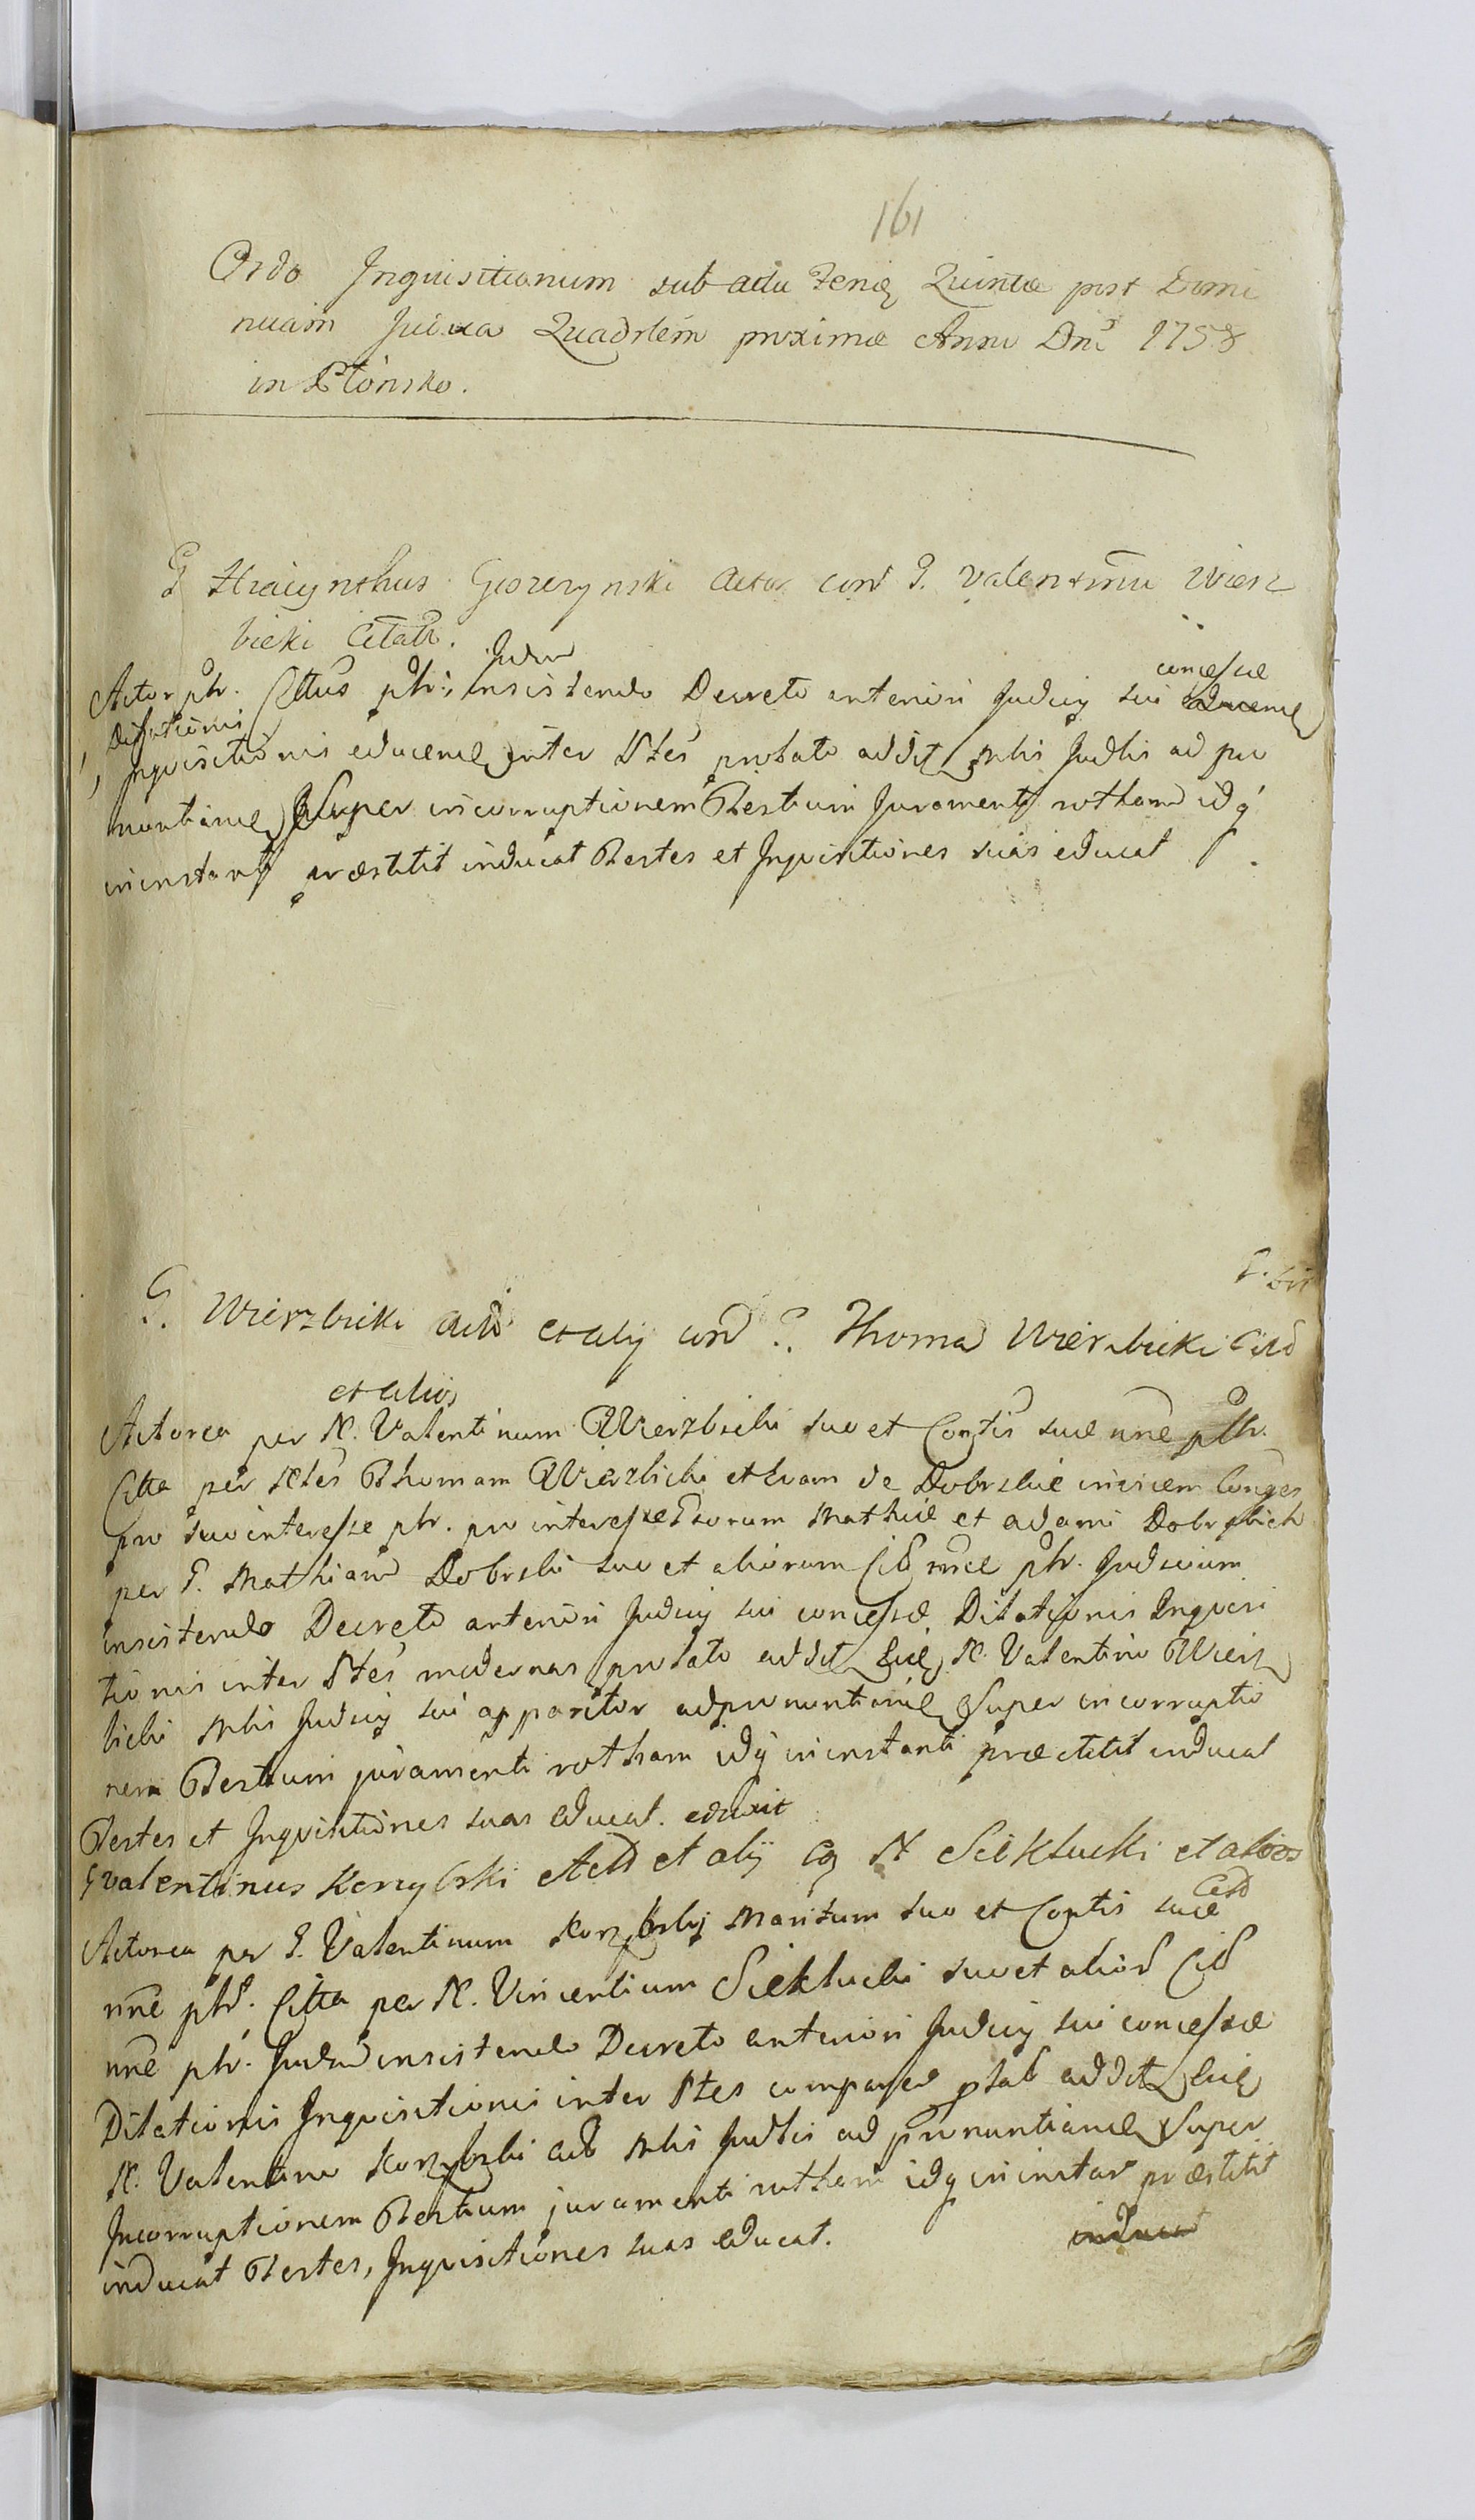 161
Ordo Inquisitionum sub actu Feriæ Quintæ post Domi
nicam Quadrlem proximæ Anni Dni 1758
in Płońsko.
G Hiacynthus Gorczynski Actor con G. Valentinu Wierz
bicki Citatu.
Judm
concessæ
Actor pltr. Cttus pltr. insistendo Decreto anteriori Judicij sui
Dilationis
Inquisitionis educendæ inter Ptes probato addit Mlis Judlis ad pro
nuntiandæ Super incorruptionem Testium Juramenti rotham idq
in instanti præstitit inducat Testes et Inquisitiones suas educat
G. Wierzbicki Act et alij con G. Thoma Wierzbicki Citt
et alios
Actorea per N. Valentinum Wierzbicki suo et Contis suæ nne pltr.
Citta per Ntes Thomam Wierzbicki et Evam de Dobrskie invicem Conges
pro suo interesse pltr. pro interesse Porum Mathiæ et Adami Dobrskich
per G. Mathiam Dobrski suo et aliorum Cit nne pltr. Judicium
insistendo Decreto anteriori Judicij sui concessæ Dilationis Inquisi
tionis inter Ptes modernas probato addit N. Valentino Wierz
bicki Mlis Judicij sui apparitor ad pronuntiandæ Super incorruptio
nem Testium juramenti rotham idq in instanti præstitit inducat
Testes et Inquisitiones suas educat. eduxit
G Valentinus Korzybski Act et alij Cq N Siekłucki et alios
Citt
Actorea per G. Valentinum Korzybskij Maritum suo et Contis suæ
nne pltr. Citta per N. Vincentium Siekłucki suo et alior Cit
nne pltr. Judm insistendo Decreto anteriori Judicij sui concessæ
Dilationis Inquisitionis inter Ptes addit
N. Valentino Korzybski Mlis Judlis ad pronuntiandæ Super
Incorruptionem Testium juramenti rotham idq in instan præstitit
inducat Testes, Inquisitiones suas educat.
inducat